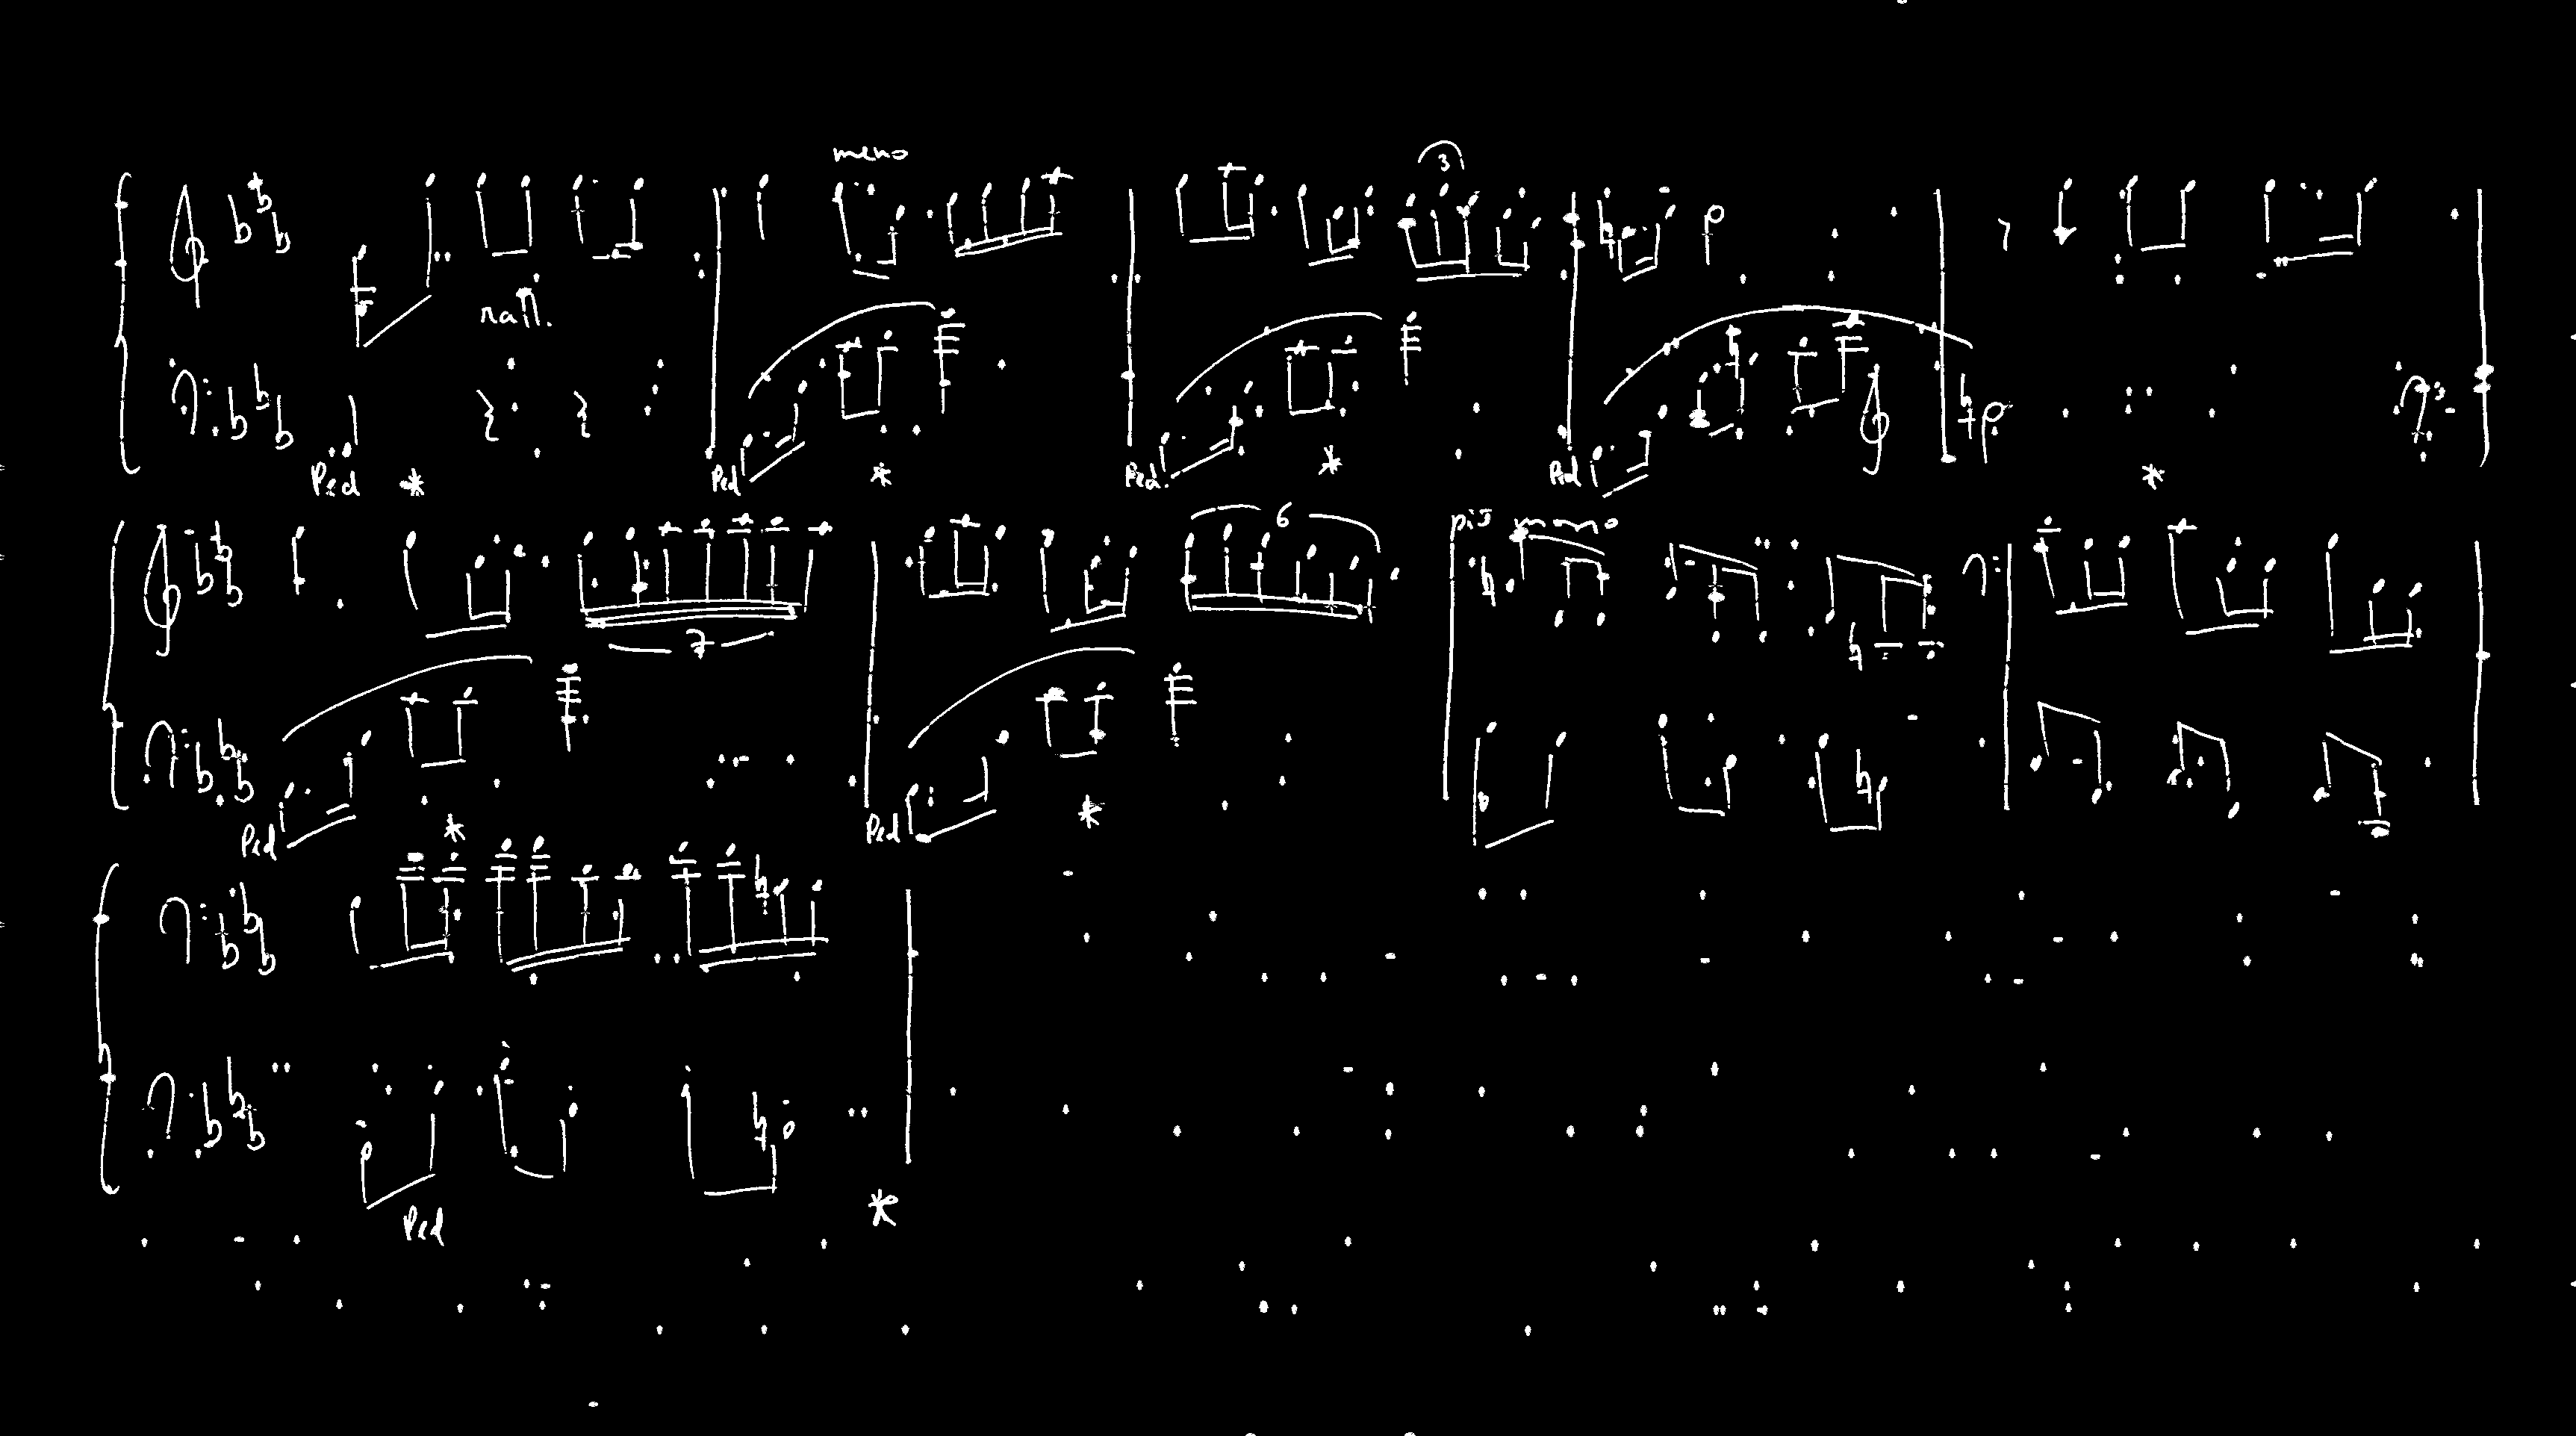 meno
3
rall.
Ped * Ped * Ped. * Ped *
6 più meno
7
Ped * Ped *
Ped *